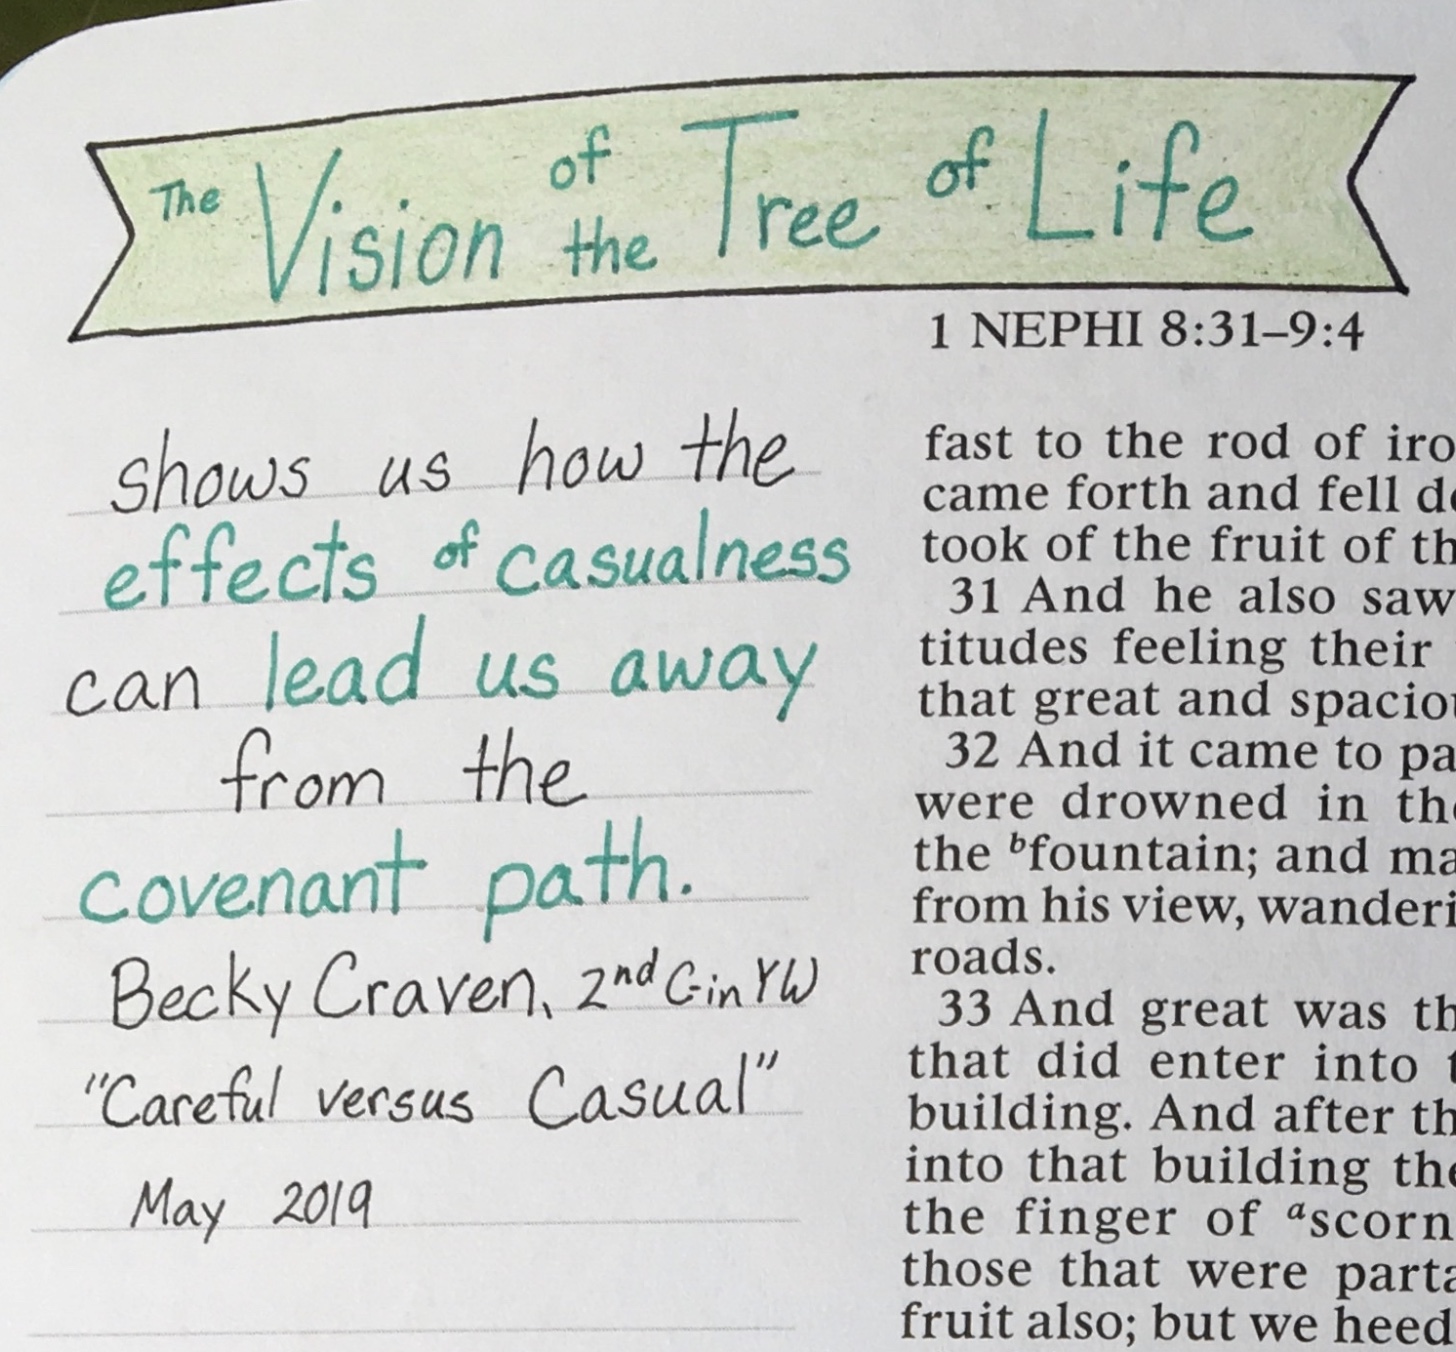 The Vision of the Tree of Life
shows us how the
effects of casualness
can lead us away
from the
covenant path.
Becky Craven, 2nd C in YW
"Careful versus Casual"
May 2019
1 NEPHI 8:31–9:4
fast to the rod of iro
came forth and fell d
took of the fruit of th
31 And he also saw
titudes feeling their
that great and spaciou
32 And it came to pa
were drowned in the
the ᵇfountain; and ma
from his view, wanderi
roads.
33 And great was th
that did enter into t
building. And after th
into that building the
the finger of ᵃscorn
those that were parta
fruit also; but we heed